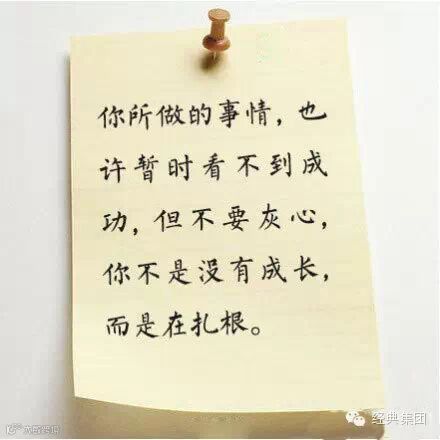 你所做的事情，也
许暂时看不到成
功，但不要灰心，
你不是没有成长，
而是在扎根。
经典集团